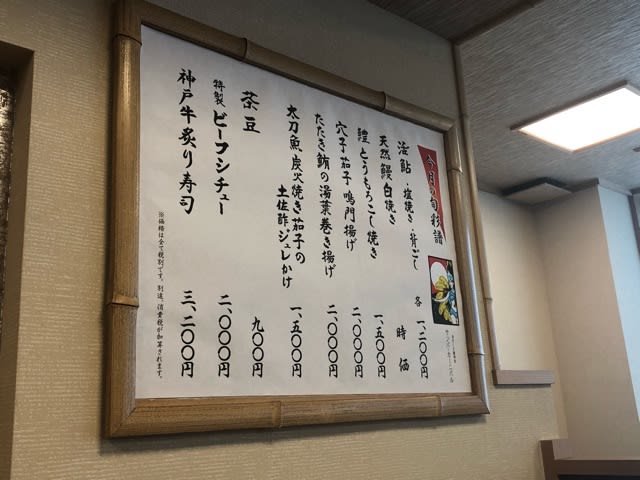 今月の旬彩譜
活鮎・塩焼き・背ごし 各一、二〇〇円
天然鰻白焼き 時価
鱧とうもろこし焼き 一、五〇〇円
穴子茄子鳴門揚げ 二、〇〇〇円
たたき鮪の湯葉巻き揚げ 二、〇〇〇円
太刀魚炭火焼き茄子の
土佐酢ジュレかけ 一、五〇〇円
茶豆 九〇〇円
特製ビーフシチュー 二、〇〇〇円
神戸牛炙り寿司 三、二〇〇円
※価格は全て税別です。別途、消費税が加算されます。